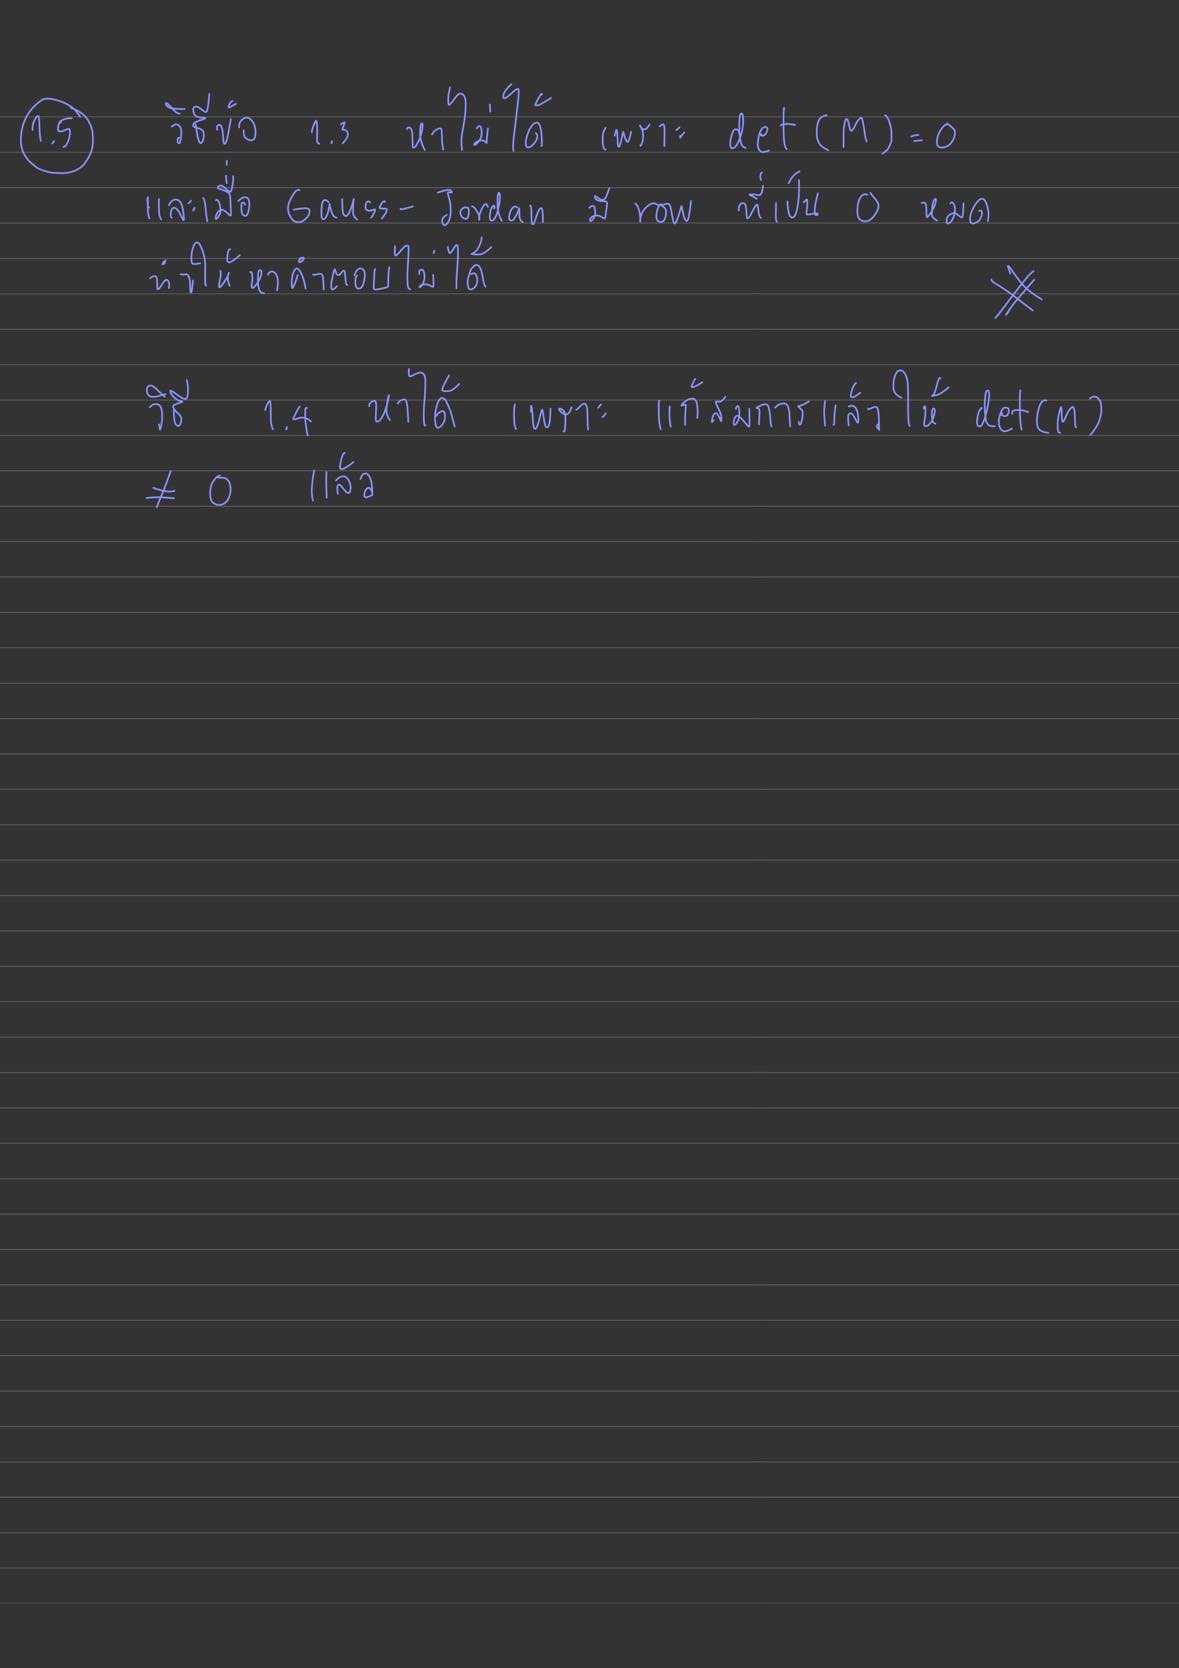 1.5 วิธีข้อ 1.3 หาไม่ได้ เพราะ det(M)=0
และเมื่อ Gauss-Jordan มี row ที่เป็น 0 หมด
ทำให้หาคำตอบไม่ได้
วิธี 1.4 หาได้ เพราะ แก้สมการแล้วให้ det(M)
≠ 0 แล้ว